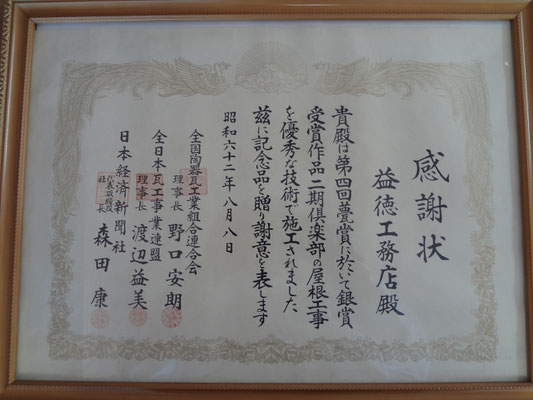 感謝状
益徳工務店殿
貴殿は第四回甍賞に於いて銀賞
受賞作品二期倶楽部の屋根工事
を優秀な技術で施工されました
茲に記念品を贈り謝意を表します
昭和六十二年八月八日
全国陶器瓦工業組合連合会
理事長 野口安朗
全日本瓦工事業連盟
理事長 渡辺益美
日本経済新聞社
代表取締役社長 森田康